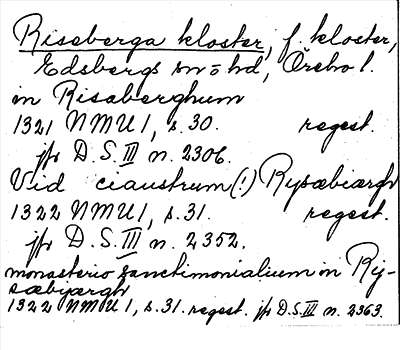 Riseberga kloster, f. kloster,
Edsbergs sn o hd, Örebro l.
in Risaberghum
1321 NMU 1, s. 30. regest.
jfr D.S. III n. 2306.
Vid ciaustrum (!) Rysæbiærgh
1322 NMU 1, s. 31. regest.
jfr D.S. III n. 2352.
monasterio sanctimonialium in Ry-
sæbyærgh
1322 NMU 1, s. 31. regest. jfr D.S. III n. 2363.